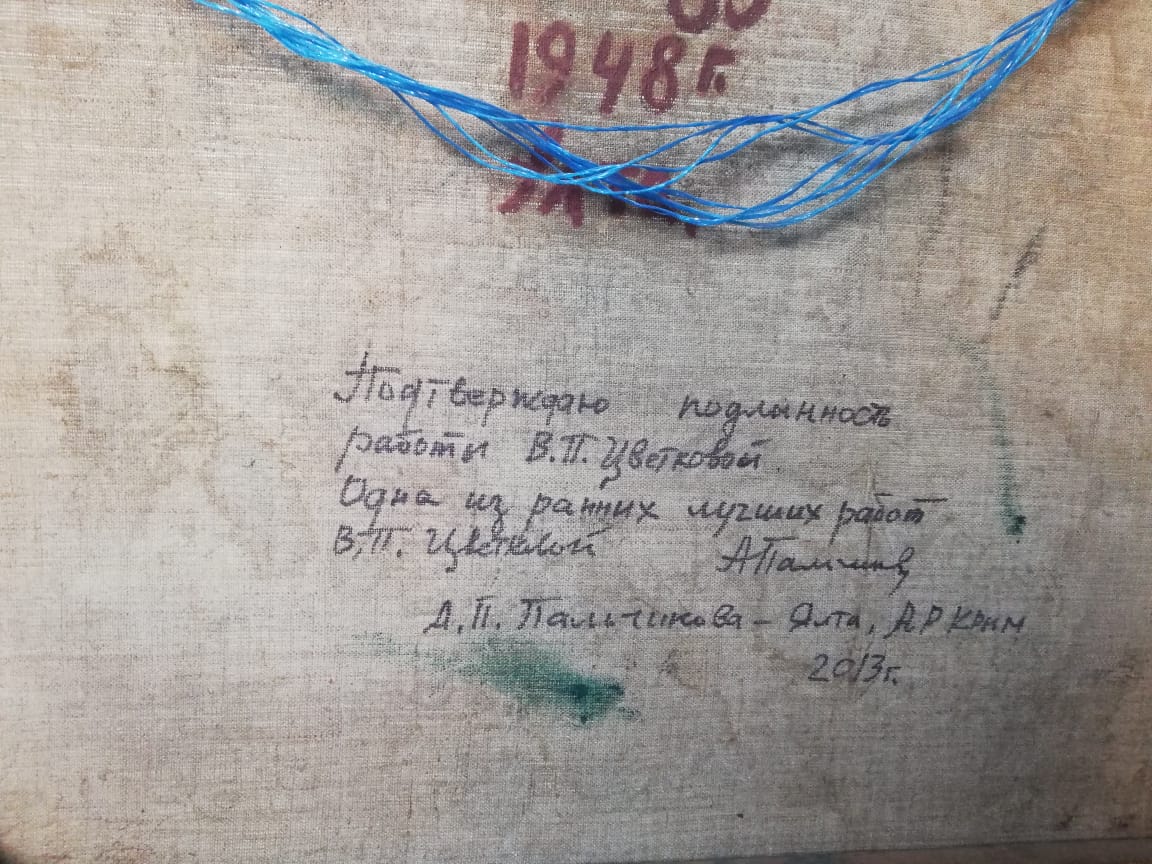 1948 г.
Подтверждаю подлинность
работы В.П. Цветковой
Одна из ранних лучших работ
В.П. Цветковой
А.П. Пальчикова - Ялта, АР Крым
2013г.